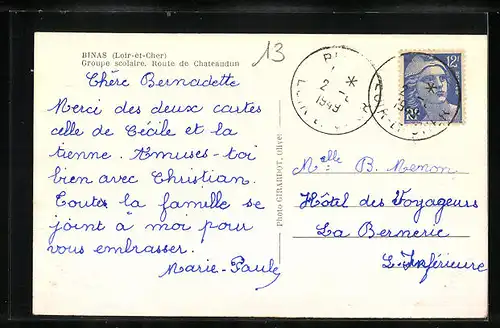 BINAS (Loir-et-Cher)
Groupe scolaire, Route de Chateaudun
13
Chère Bernadette
Merci des deux cartes
celle de Cécile et la
tienne. Amuses-toi
bien avec Christian.
Toute la famille se
joint à moi pour
vous embrasser.
Marie-Paule
Photo GIRARDOT, Olivet
12F
2
1949
1949
Melle B. Menon
Hôtel des Voyageurs
La Bernerie
L. Inférieure